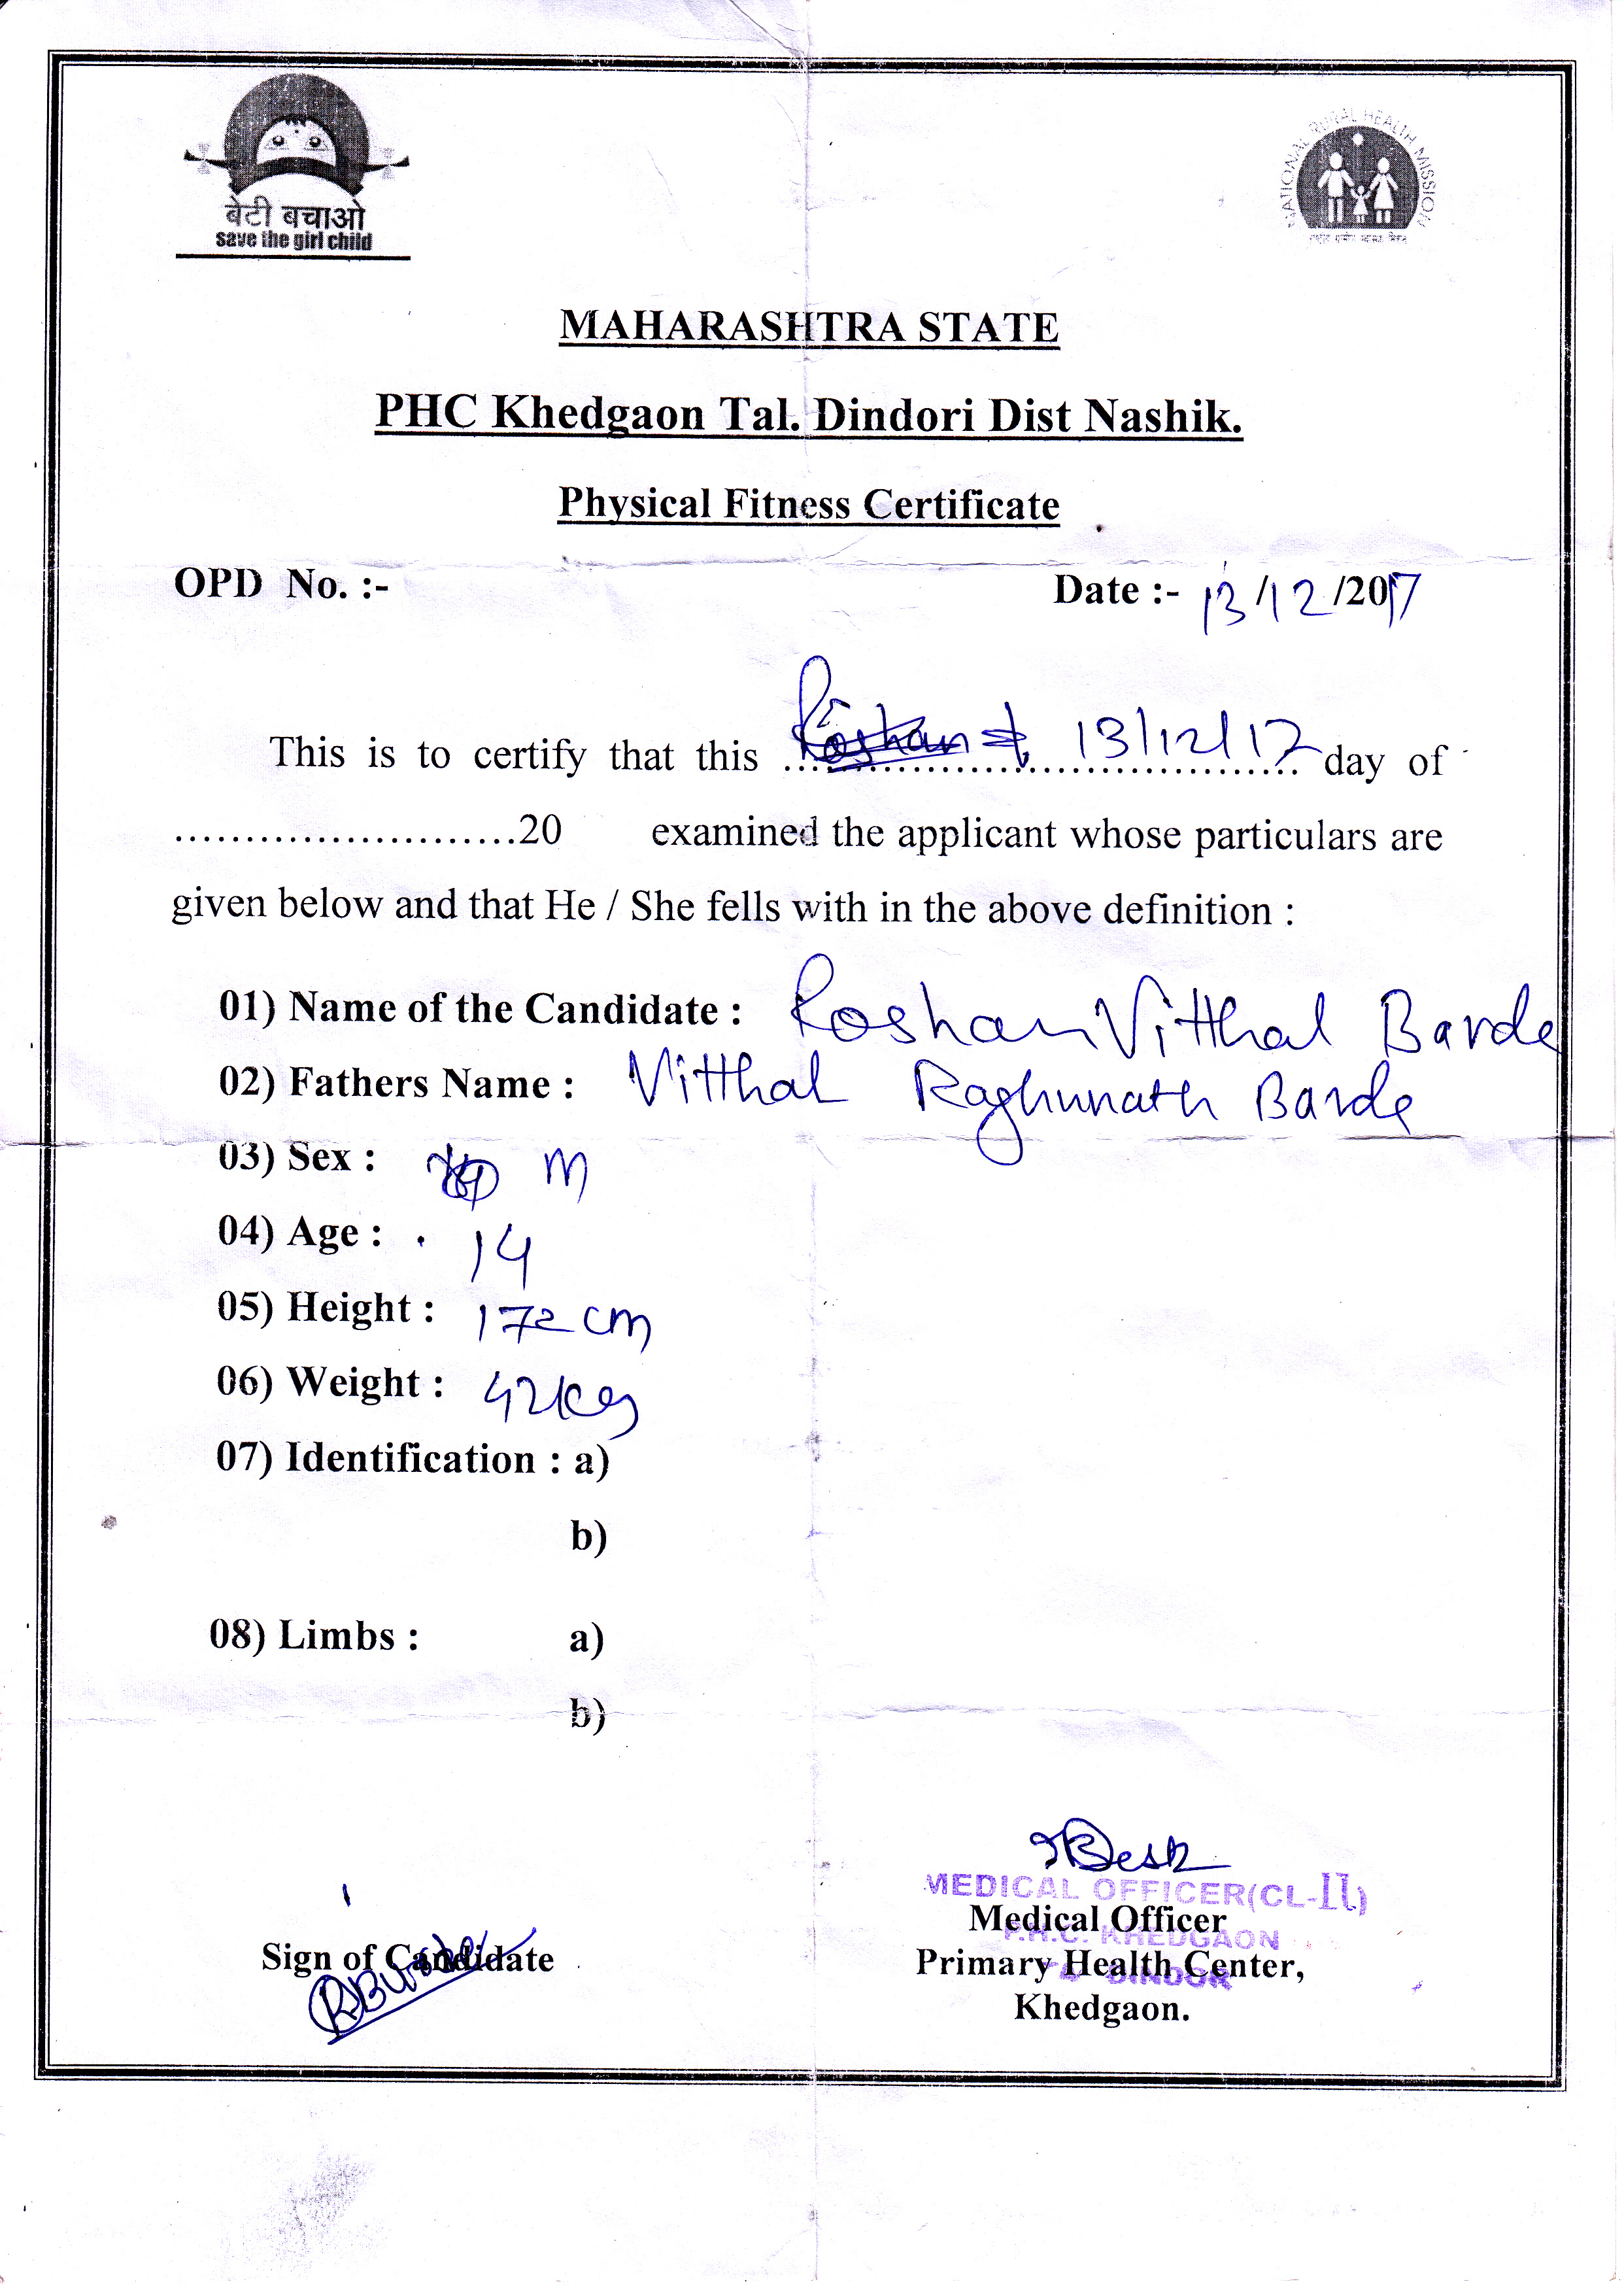 बेटी बचाओ
save the girl child
NATIONAL RURAL HEALTH MISSION
MAHARASHTRA STATE
PHC Khedgaon Tal. Dindori Dist Nashik.
Physical Fitness Certificate
OPD No. :- Date :- 13/12/2017
This is to certify that this Roshan 13/12/17 day of
........................20 examined the applicant whose particulars are
given below and that He / She fells with in the above definition :
01) Name of the Candidate : Roshan Vitthal Barde
02) Fathers Name : Vitthal Raghunath Barde
03) Sex : M
04) Age : 14
05) Height : 172 cm
06) Weight : 42kg
07) Identification : a)
b)
08) Limbs : a)
b)
MEDICAL OFFICER(CL-II)
Medical Officer
P.H.C. KHEDGAON
Sign of Candidate Primary Health Center,
Khedgaon.